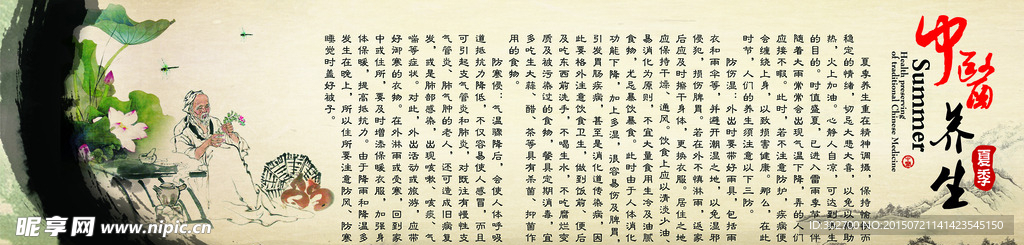 中醫
养生
夏季
Summer
Health preserving
of traditional Chinese Medicine
夏季养生重在精神调摄，保持愉快而
稳定的情绪，切忌大悲大喜，以免以热助
热，火上加油。心静人自凉，可达到养生
的目的。时值盛夏，已进入雷雨季节伴
随着大雨常常会出现气温下降，弄的人们
应接不暇。此时，若不注意防护，疾病就
会缠绕上身，以致损害健康。那么，在此
时节，人们的养生须注意以下三防。
防伤湿：外出时要带好雨具，包括雨
衣和雨伞等，并避开潮湿之地，以免湿邪
侵犯，损伤脾胃。若在外不慎淋雨，返家
后应及时擦干身体，更换衣服。居住之地
应保持干燥、通风。饮食上应以清淡少油、
易消化为原则，不宜大量食用生冷及油腻
食物，尤忌暴饮暴食。此时由于人体消化
功能下降，加上多湿，很容易伤及脾胃，
引发胃肠疾病，甚至是消化道传染病，因
此要格外注意饮食卫生，做到饭前、便后
及吃东西前洗手，不喝生水，不吃腐烂变
质及被污染过的食物，餐具定期消毒，宜
多吃生大蒜、醋、茶等具有杀菌、抑菌作
用的食物。
防寒侵：气温骤降后，会使人体呼吸
道抵抗力降低，不仅容易使人感冒，而且
可引起支气管炎和肺炎，对既往有慢性支
气管炎、肺气肿的老人，还可造成旧病复
发，或是肺部感染，出现咳嗽、咳痰、气
喘等症状。对此，外出活动或旅游，应带
好御寒的衣物。在外淋雨或受寒，回到家
中或住所，要及时增添保暖衣服，加强身
体保暖，提高抵抗力。由于降雨和降温多
发生在晚上，所以住所要注意防风，
睡觉时盖好被子。
昵享网 www.nipic.cn
ID:302700 NO:20150721141423545150